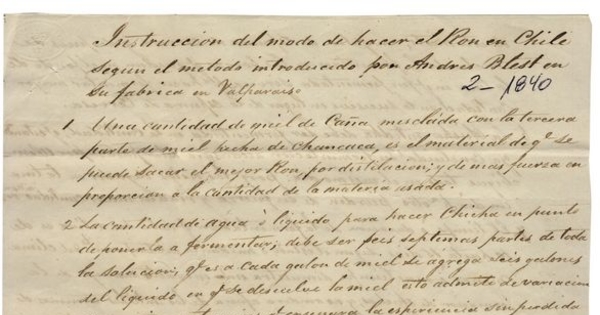 Instruccion del modo de hacer el Ron en Chile
segun el metodo introducido por Andres Blest en
su fabrica en Valparaiso
2-1840
1 Una cantidad de miel de Caña mesclada con la tercera
parte de miel hecha de Chancaca, es el material de qe se
puede sacar el mejor Ron, por distilacion; y de mas fuerza en
proporcion a la cantidad de la materia usada.
2 La cantidad de agua ò liquido para hacer Chicha en punto
de ponerla a fermentar; debe ser seis septemas partes de toda
la solucion; qe es a cada galon de miel se agrega seis galones
del liquido en qe se desuelve la miel esto admete de variacion
la esperiencia sin perdida